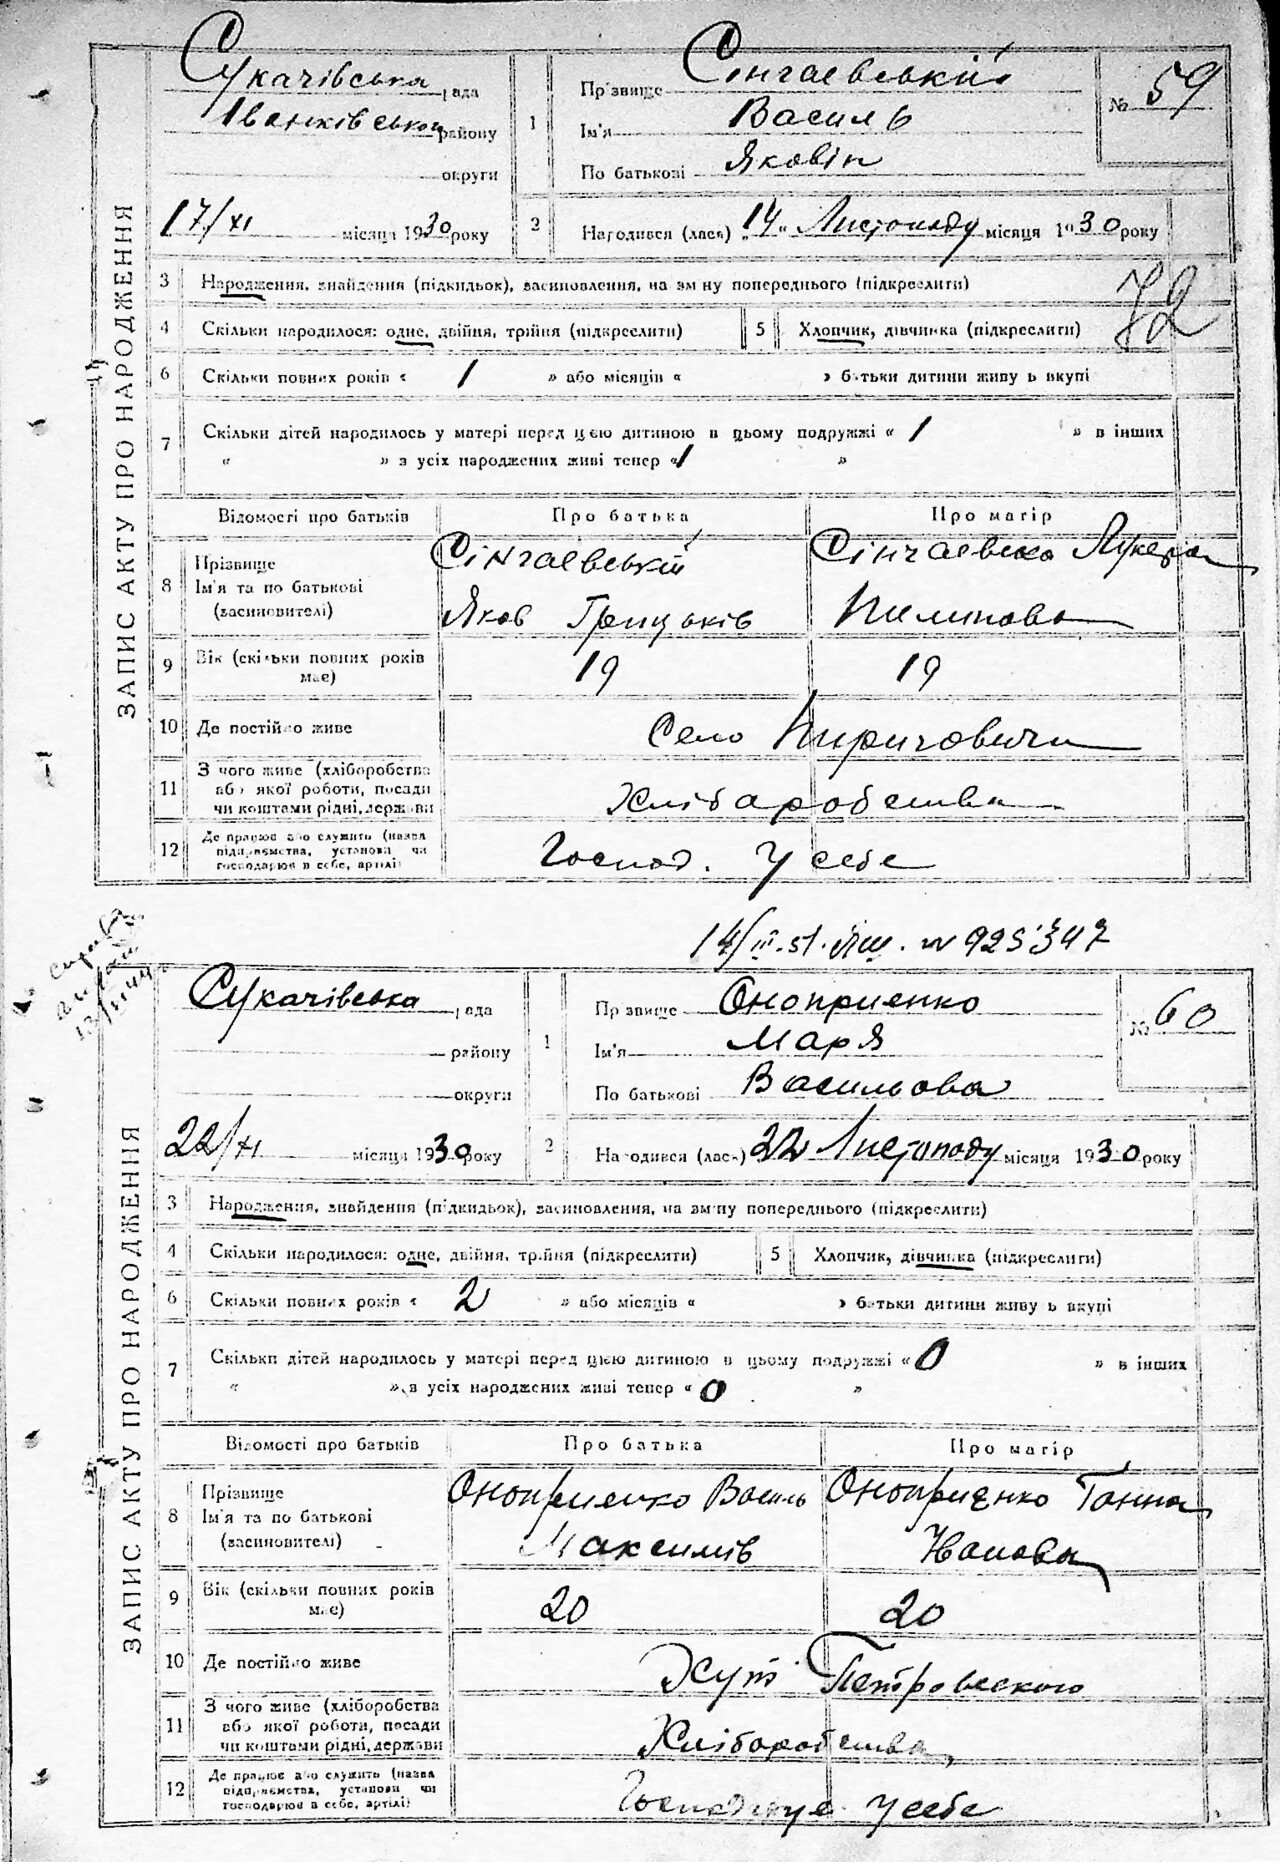 ЗАПИС АКТУ ПРО НАРОДЖЕННЯ
Сукачівська рада
Іванківськ району
округи
17/XI місяця 1930 року
1
Прізвище Сінгаевський
Ім'я Василь
По батькові Яковін
№ 59
2
Народився (лась) "14" Листопаду місяця 1930 року
3 Народження, знайдення (підкидьок), всиновлення, на зміну попереднього (підкреслити)
72
4 Скільки народилося: одне, двійня, трійня (підкреслити)
5 Хлопчик, дівчинка (підкреслити)
6 Скільки повних років « 1 » або місяців « » батьки дитини живуть вкупі
7 Скільки дітей народилось у матері перед цією дитиною в цьому подружжі « 1 » в інших
« » з усіх народжених живі тепер « 1 »
Відомості про батьків Про батька Про матір
8 Прізвище Ім'я та по батькові (всиновителі)
Сінгаевський Яков Грицьків
Сінгаевска Лукера Пилипова
9 Вік (скільки повних років має) 19 19
10 Де постійно живе Село Кириговичи
11 З чого живе (хліборобства або якої роботи, посади чи коштами рідні, держави Хлібаробства
12 Де працює або служить (назва підприємства, установи чи господарює в себе, артілі) Господ. У себе
14/III-51. № 925347
13/III 44
ЗАПИС АКТУ ПРО НАРОДЖЕННЯ
Сукачівська рада
району
округи
22/XI місяця 1930 року
1
Прізвище Оноприенко
Ім'я Маря
По батькові Васильова
№ 60
2
Народився (лась) 22 Листопаду місяця 1930 року
3 Народження, знайдення (підкидьок), всиновлення, на зміну попереднього (підкреслити)
4 Скільки народилося: одне, двійня, трійня (підкреслити)
5 Хлопчик, дівчинка (підкреслити)
6 Скільки повних років « 2 » або місяців « » батьки дитини живуть вкупі
7 Скільки дітей народилось у матері перед цією дитиною в цьому подружжі « 0 » в інших
« » з усіх народжених живі тепер « 0 »
Відомості про батьків Про батька Про матір
8 Прізвище Ім'я та по батькові (всиновителі)
Оноприенко Василь Максимів
Оноприенко Ганна Іванова
9 Вік (скільки повних років має) 20 20
10 Де постійно живе Хут Петровского
11 З чого живе (хліборобства або якої роботи, посади чи коштами рідні, держави Хліборобства
12 Де працює або служить (назва підприємства, установи чи господарює в себе, артілі) Господарує у себе